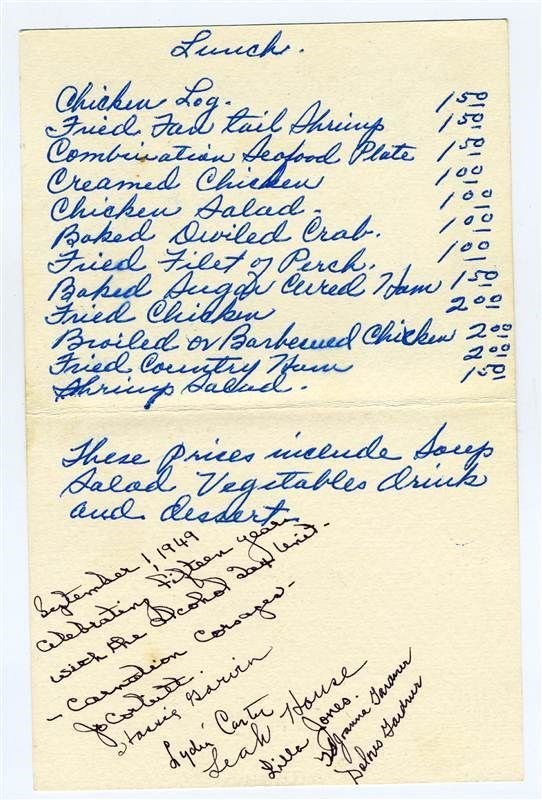 Lunch.
Chicken Log. 1 50
Fried Fan tail Shrimp 1 50
Combination Seafood Plate 1 50
Creamed Chicken 1 00
Chicken Salad. 1 00
Baked Diviled Crab. 1 00
Fried Filet of Perch. 1 00
Baked Sugar Cured Ham 1 50
Fried Chicken 2 00
Broiled or Barbecued Chicken 2 00
Fried Country Ham 2 00
Shrimp Salad. 1 50
These prices include Soup
Salad Vegetables drink
and dessert
September 1, 1949
Celebrating fifteen years
with the Alcohol Tax Unit-
- Carnation Corsages -
Jo Corbett
Garvin
Lydia Carter
Leah House
Lilla Jones.
Gardner
Delores Gardner